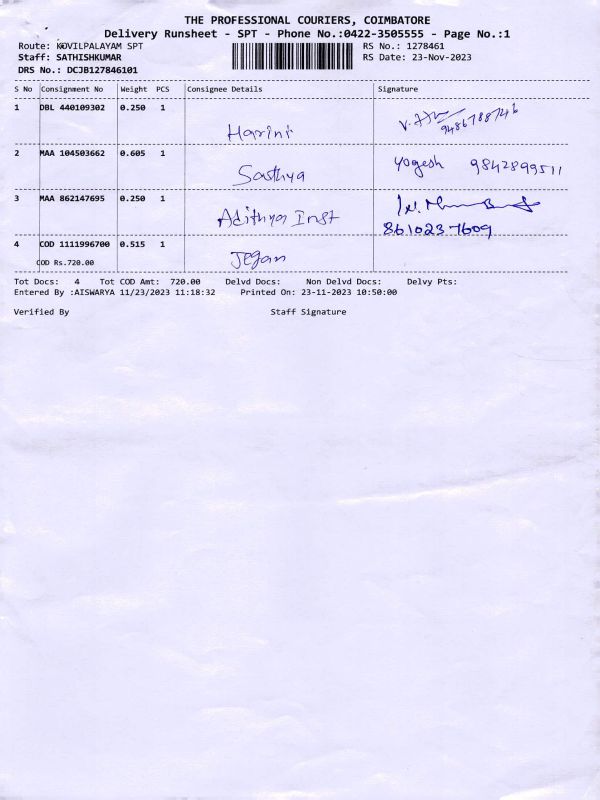 THE PROFESSIONAL COURIERS, COIMBATORE
Delivery Runsheet - SPT - Phone No.:0422-3505555 - Page No.:1
Route: KOVILPALAYAM SPT RS No.: 1278461
Staff: SATHISHKUMAR RS Date: 23-Nov-2023
DRS No.: DCJB127846101
S No Consignment No Weight PCS Consignee Details Signature
1 DBL 440109302 0.250 1 Harini
2 MAA 104503662 0.605 1 Sasthya Yogesh 9842899511
3 MAA 862147695 0.250 1 Adithya Inst
8610237609
4 COD 1111996700 0.515 1 Jegan
COD Rs.720.00
Tot Docs: 4 Tot COD Amt: 720.00 Delvd Docs: Non Delvd Docs: Delvy Pts:
Entered By :AISWARYA 11/23/2023 11:18:32 Printed On: 23-11-2023 10:50:00
Verified By Staff Signature